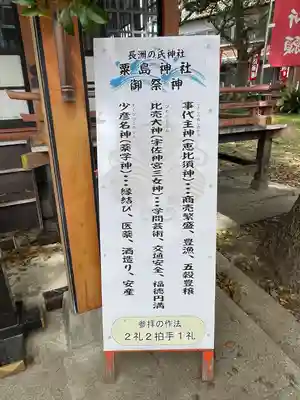 長洲の氏神社
粟島神社
御祭神
事代主神(恵比須神)・・・商売繁盛、豊漁、五穀豊穣
比売大神(宇佐神宮三女神)・・・学問芸術、交通安全、福徳円満
少彦名神(薬学神)・・・縁結び、医薬、酒造り、安産
参拝の作法
2礼2拍手1礼
祈願